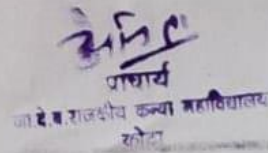 प्राचार्य
जा.दे.ब.राजकीय कन्या महाविद्यालय
कोटा